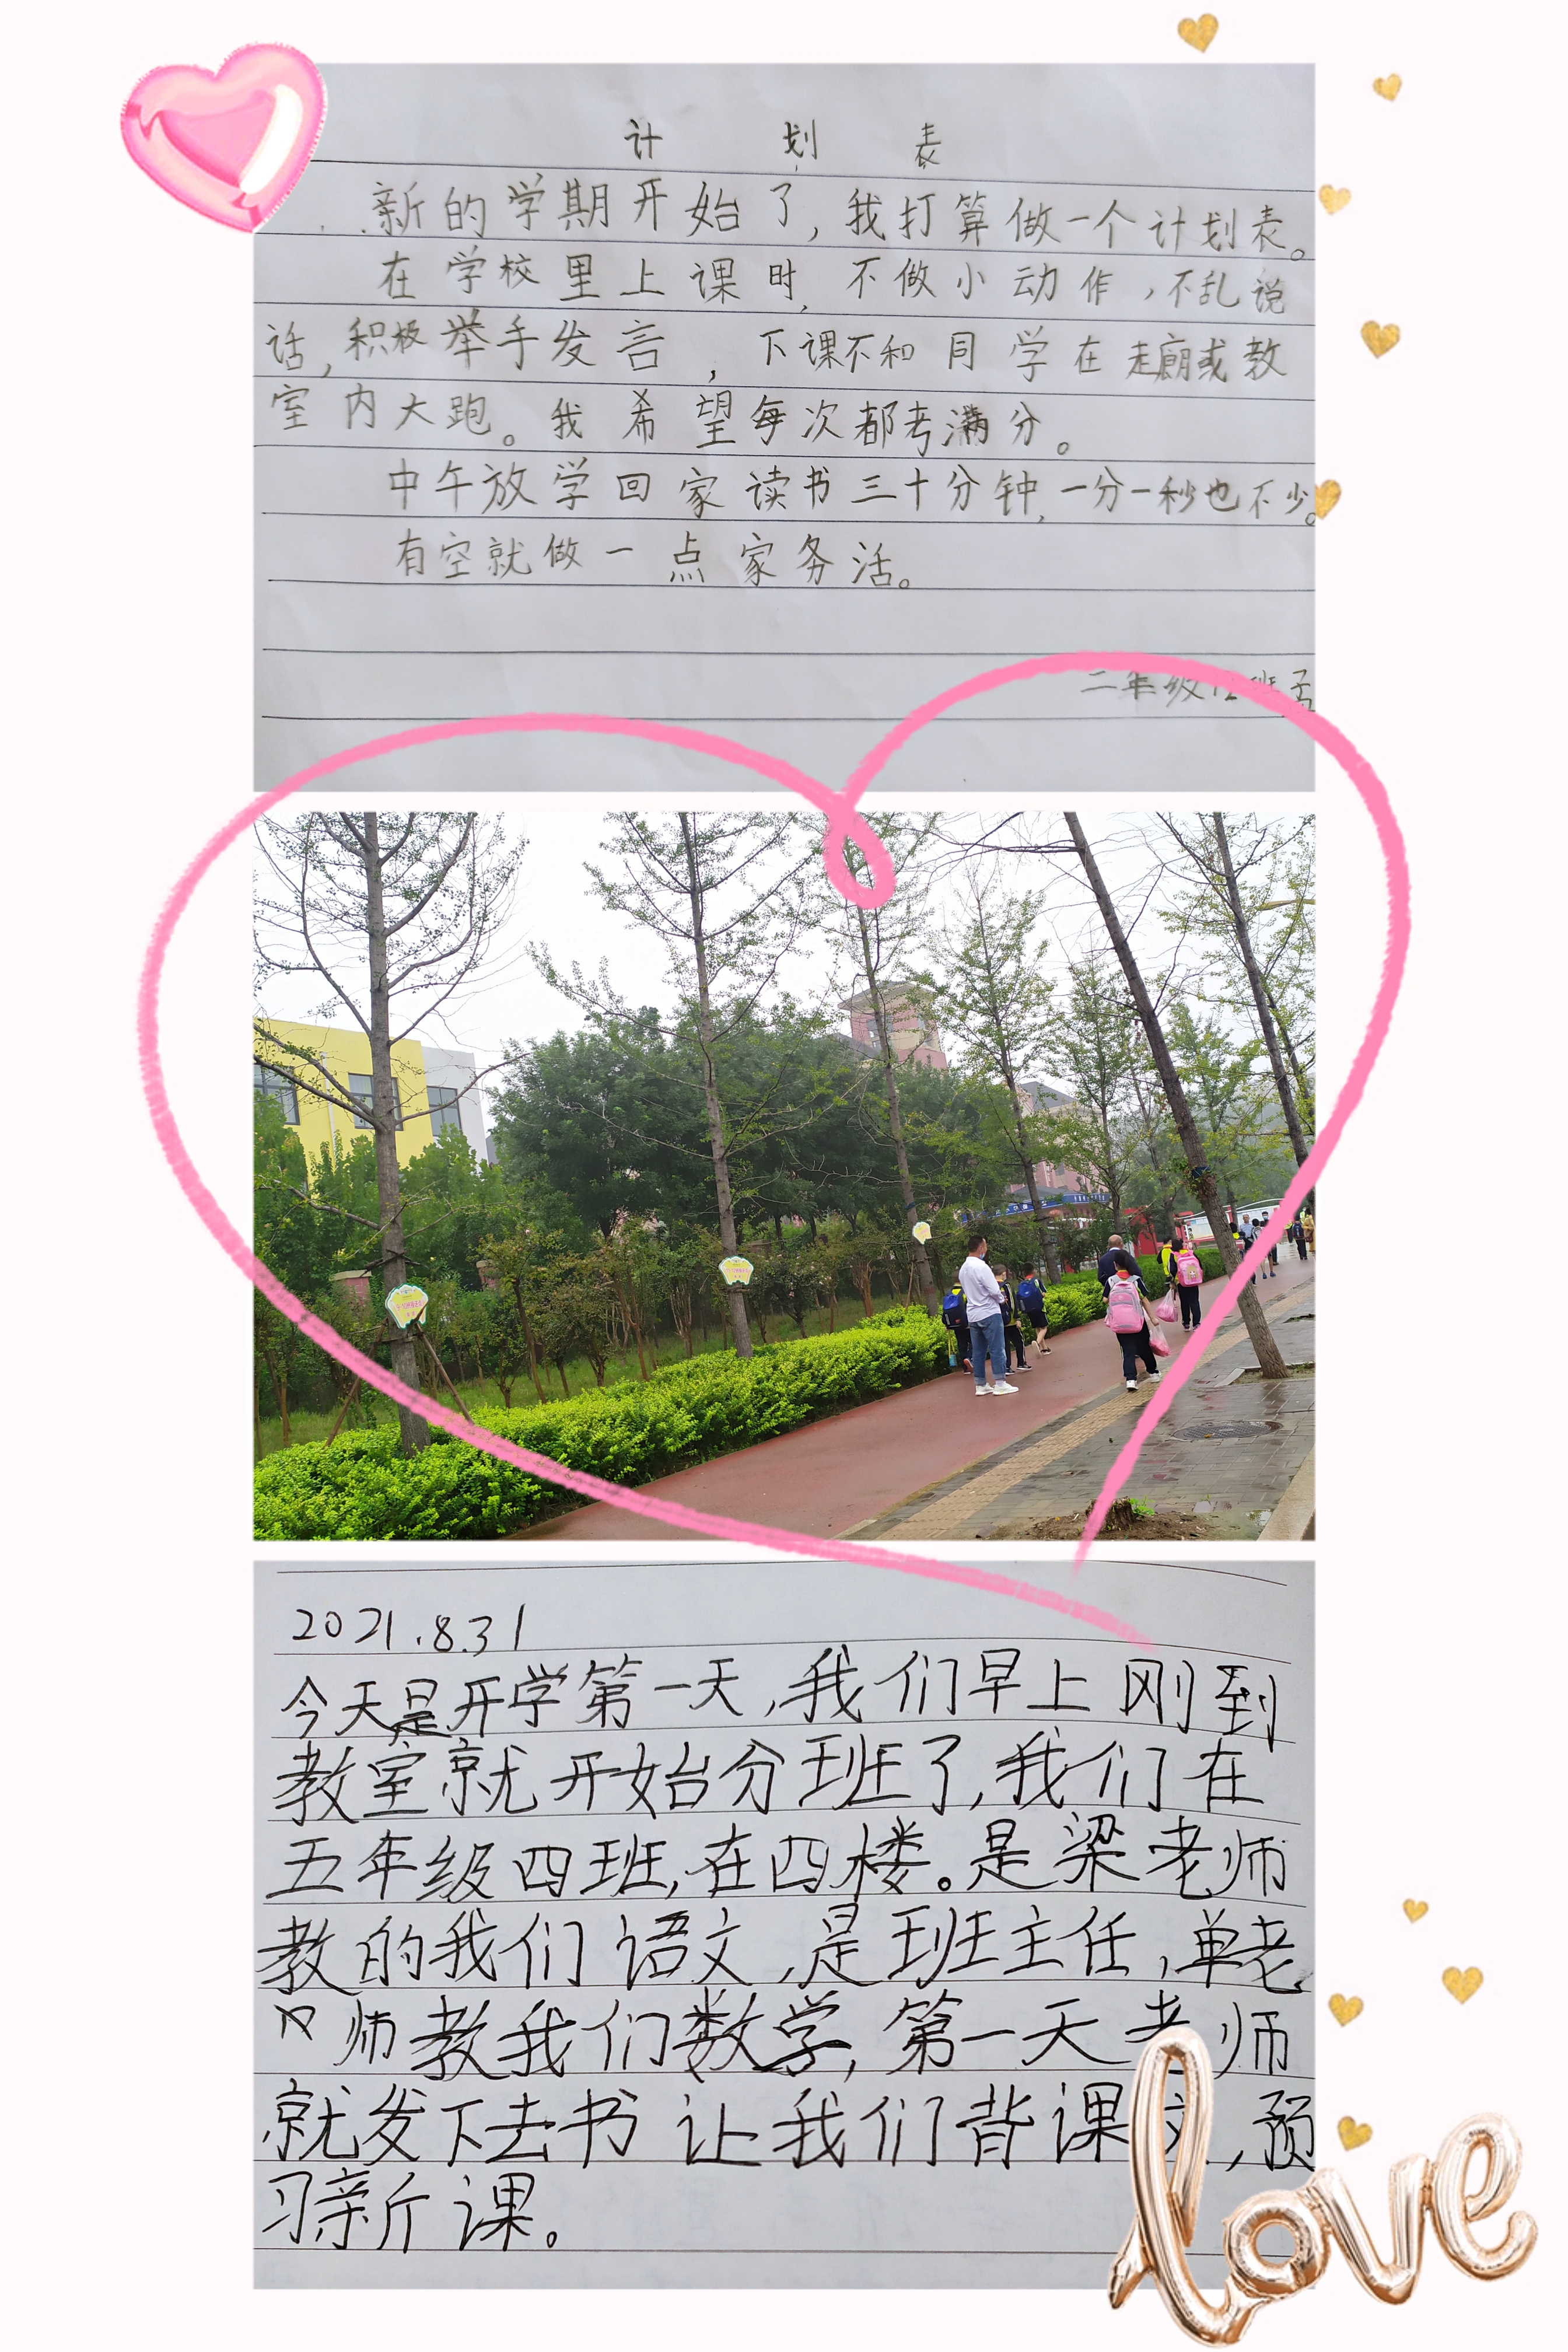 计划表
新的学期开始了,我打算做一个计划表。
在学校里上课时,不做小动作,不乱说
话,积极举手发言,下课不和同学在走廊或教
室内大跑。我希望每次都考满分。
中午放学回家读书三十分钟,一分一秒也不少。
有空就做一点家务活。
二年级12班孟
2021.8.31
今天是开学第一天,我们早上刚到
教室就开始分班了,我们在
五年级四班,在四楼。是梁老师
教的我们语文,是班主任,单老
师教我们数学,第一天老师
就发下去书让我们背课文,预
习新课。
love